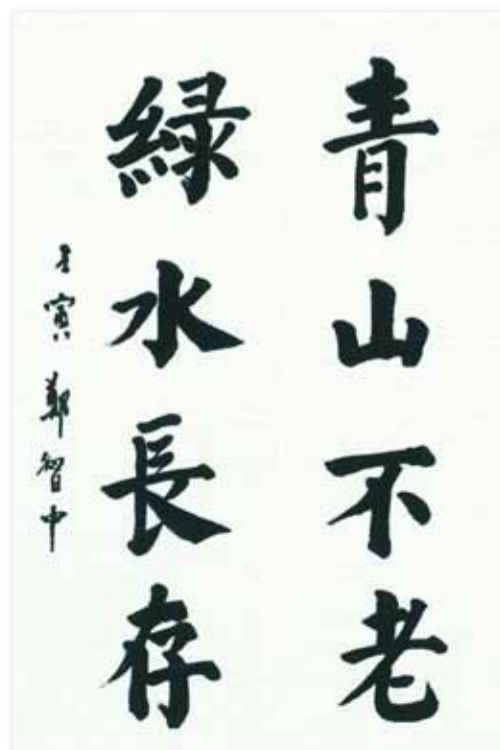 青山不老
綠水長存
壬寅 鄭智中